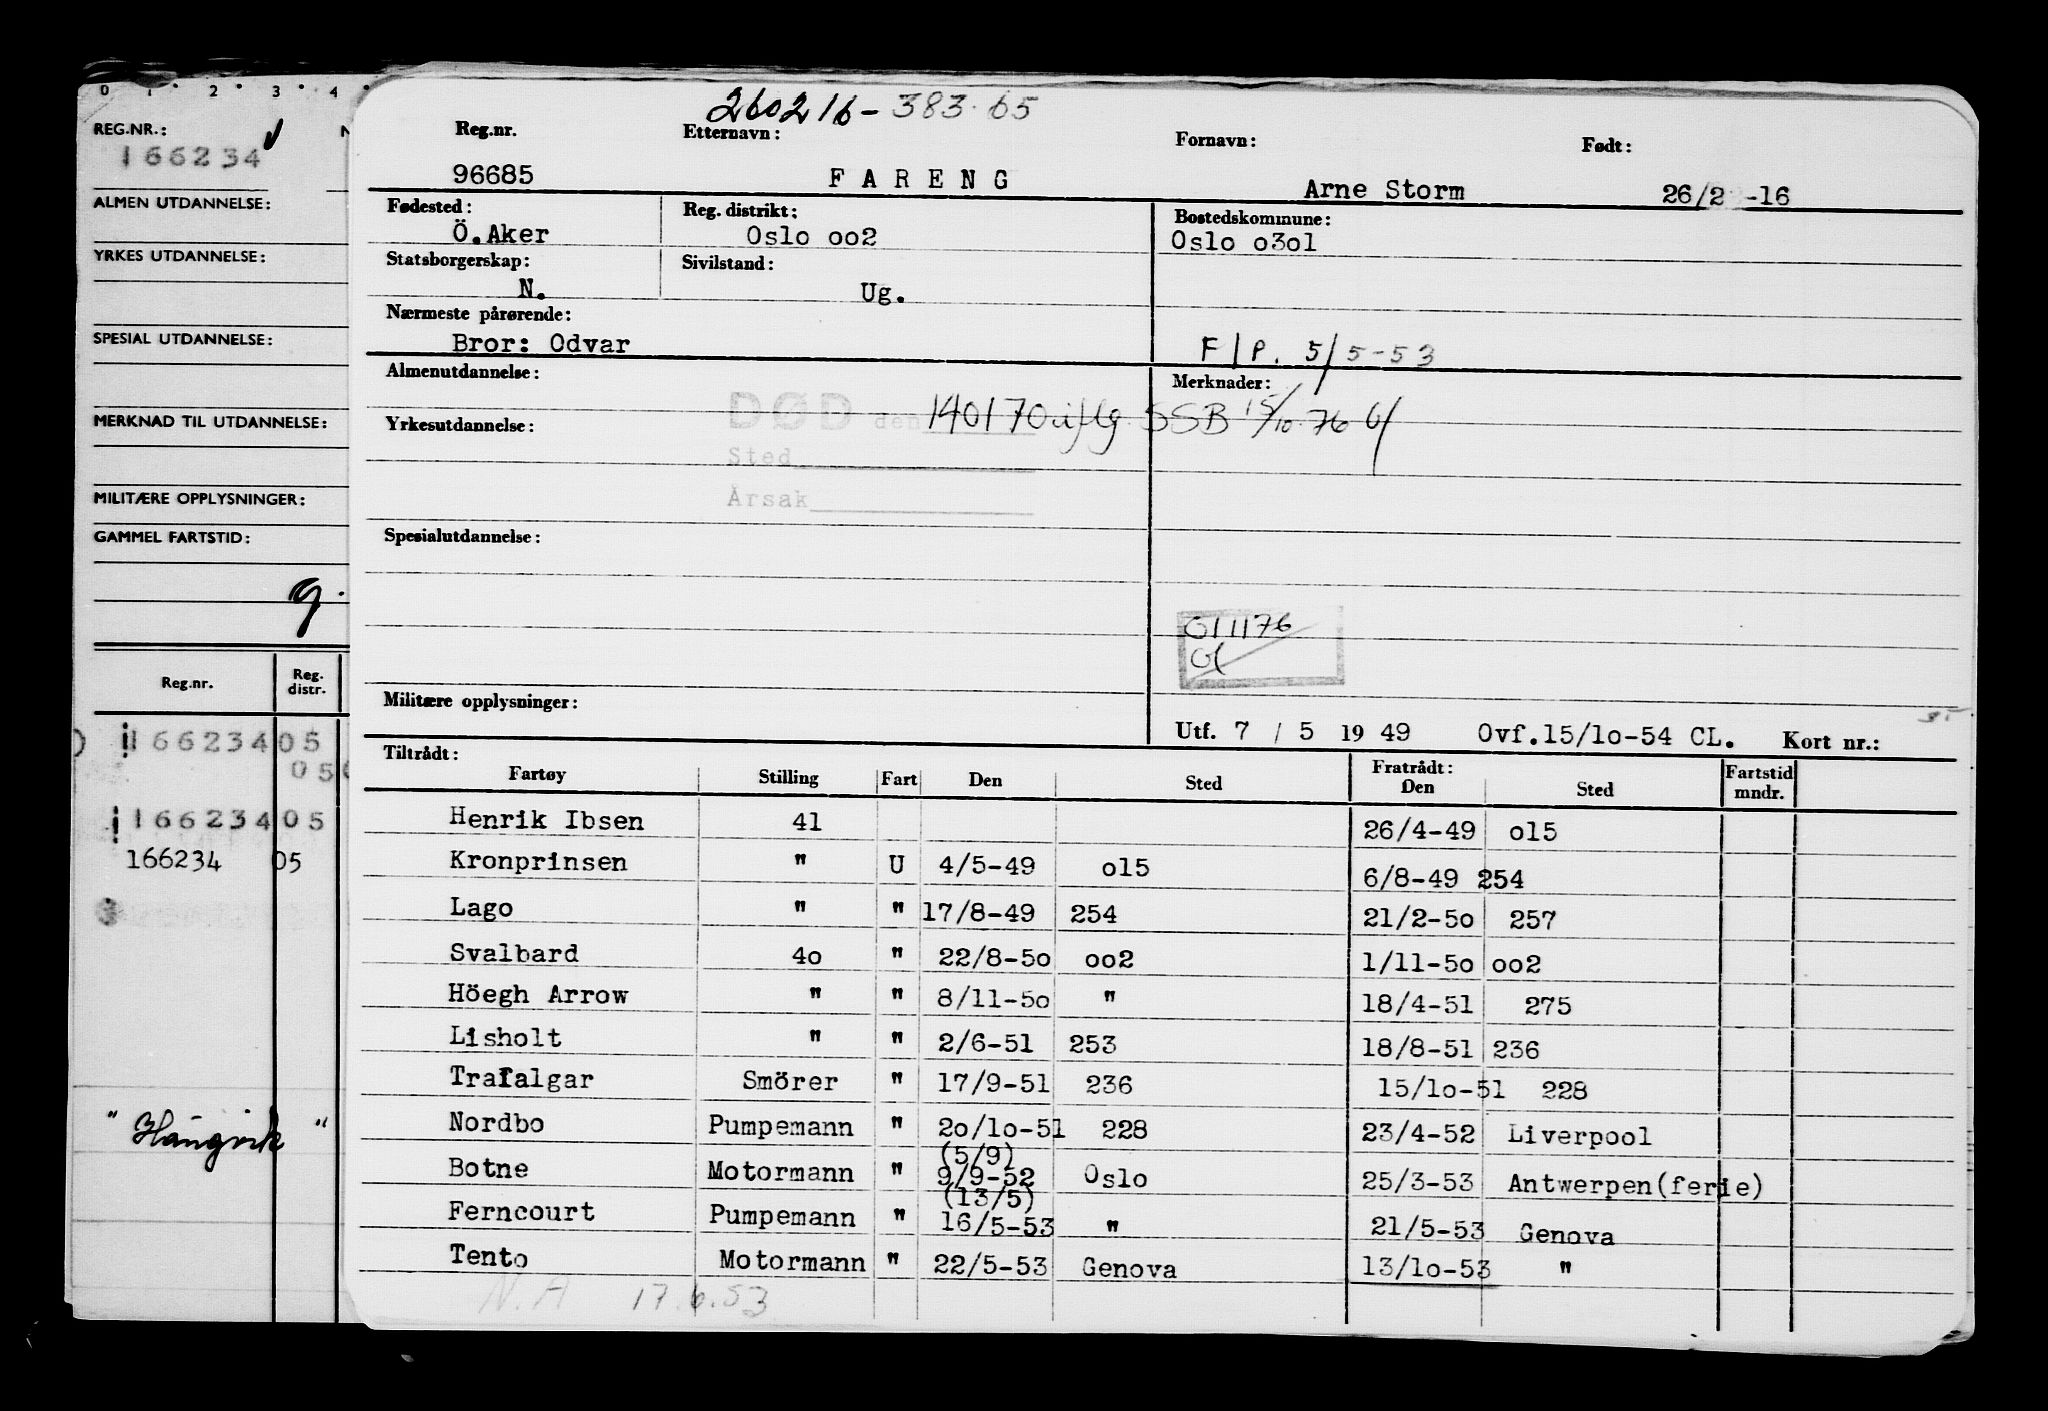 0 1 2 3 4
REG.NR.:
166234
ALMEN UTDANNELSE:
YRKES UTDANNELSE:
SPESIAL UTDANNELSE:
MERKNAD TIL UTDANNELSE:
MILITÆRE OPPLYSNINGER:
GAMMEL FARTSTID:
g.
Reg.nr. Reg. distr.
166234 05
05
166234 05
166234 05
260216-383.65
Reg.nr. Etternavn: Fornavn: Født:
96685 FARENG Arne Storm 26/2 -16
Fødested: Reg. distrikt: Bostedskommune:
Ö.Aker Oslo oo2 Oslo o3o1
Statsborgerskap: Sivilstand:
N. Ug.
Nærmeste pårørende:
Bror: Odvar F/P. 5/5-53
Almenutdannelse: Merknader:
DØD den 140170 iflg. SSB 15/10 76
Yrkesutdannelse:
Sted
Årsak
Spesialutdannelse:
011176
Militære opplysninger:
Utf. 7 / 5 19 49 Ovf.15/1o-54 CL. Kort nr.:
Tiltrådt: Fratrådt: Fartstid
Fartøy Stilling Fart Den Sted Den Sted mndr.
Henrik Ibsen 41 26/4-49 o15
Kronprinsen " U 4/5-49 o15 6/8-49 254
Lago " " 17/8-49 254 21/2-5o 257
Svalbard 4o " 22/8-5o oo2 1/11-5o oo2
Höegh Arrow " " 8/11-5o " 18/4-51 275
Lisholt " " 2/6-51 253 18/8-51 236
Trafalgar Smörer " 17/9-51 236 15/1o-51 228
Nordbo Pumpemann " 2o/1o-51 228 23/4-52 Liverpool
(5/9)
Botne Motormann " 9/9-52 Oslo 25/3-53 Antwerpen(ferie)
(13/5)
Ferncourt Pumpemann " 16/5-53 " 21/5-53 Genova
Tento Motormann " 22/5-53 Genova 13/1o-53 "
N.A 17.6.53